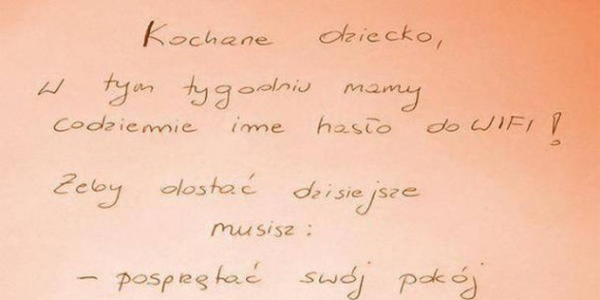 Kochane dziecko,
W tym tygodniu mamy
codziennie inne hasło do WIFI!
Żeby dostać dzisiejsze
musisz:
- posprzątać swój pokój